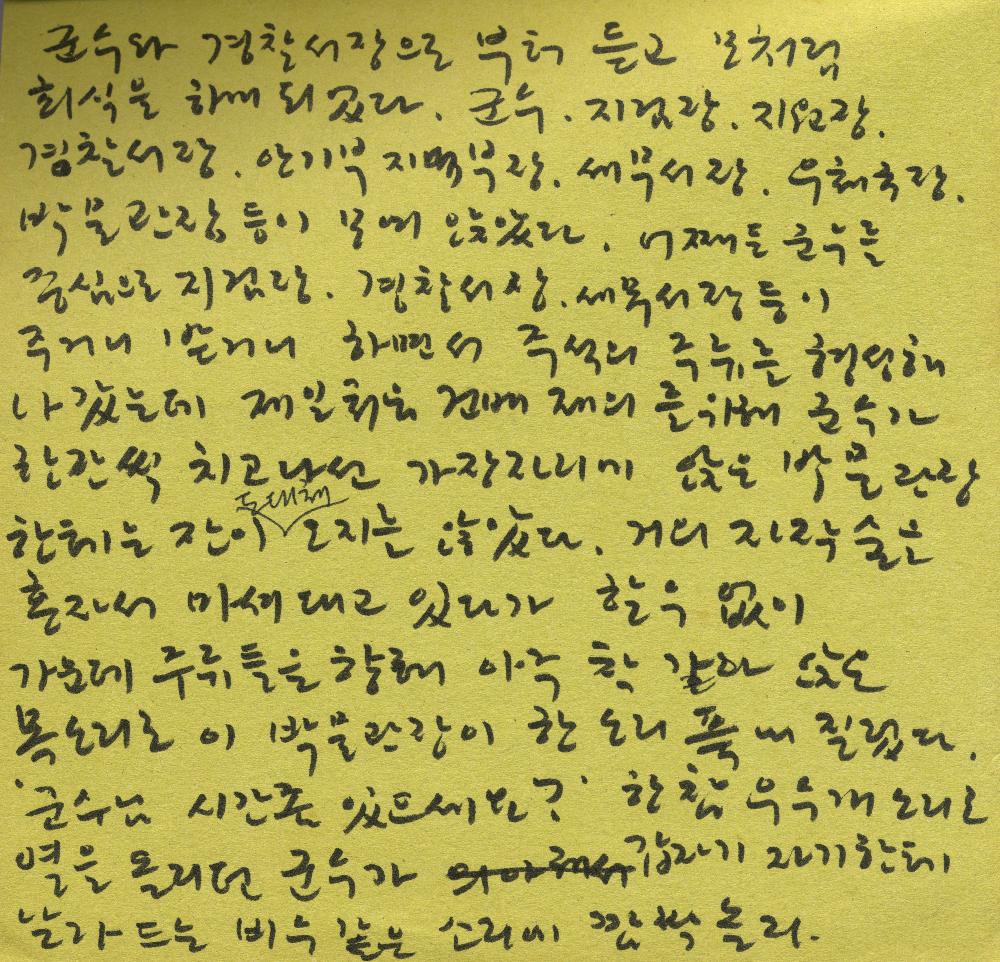 군수와 경찰서장으로 부터 듣고 모처럼
회식을 하게 되었다. 군수. 지검장. 지원장.
경찰서장. 안기부 지역부장. 세무서장. 우체국장.
박물관장 등이 모여 앉았다. 어쨌든 군수를
중심으로 지검장. 경찰서장. 세무서장 등이
주거니 받거니 하면서 주석의 주류를 형성해
나갔는데 제일처음 건배 제의를 위해 군수가
한잔씩 치고나선 가장자리에 앉은 박물관장
한테는 잔이 도대체 오지는 않았다. 거의 자작술은
혼자서 마셔대고 있다가 할 수 없이
가운데 주류들을 향해 아주 착 같아 앉은
목소리로 이 박물관장이 한 소리 푹 내 질렀다.
'군수님 시간좀 있으세요?' 한참 우스개 소리로
열을 올리던 군수가 갑자기 자기한테
날라드는 비수 같은 소리에 깜짝 놀라.